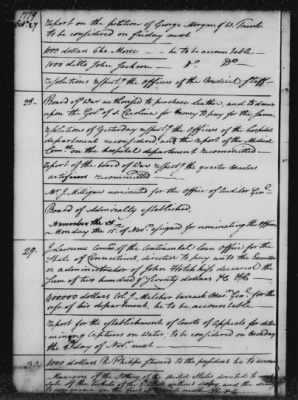 1779
Oct. 27
Report on the petition of George Morgan & W. Trent
to be considered on friday next
1000 dollars Cha. Morse — he to be accountable
1000 ditto John Jackson — do do
Resolutions respectg. the officers of the Medical Staff
28. Board of War authorised to purchase leather, and to draw
upon the Govr. of S Carolina for money to pay for the same.
Resolutions of Yesterday respectg. the Officers of the hospital
department reconsidered, and the report of the Medical
Comee. on the hospital department recommitted
report of the board of War respectg. the quarter masters
artificers recommitted
Mr. J. Milligan nominated for the office of Auditor Genl.
Board of Admiralty established.
Monday the 15 of Novr. assigned for nominating the officers
29. J. Lawrence Comr. of the Continental Loan Office for the
State of Connecticut, directed to pay unto the Executor
or administrator of John Hotchkiss deceased the
Sum of two hundred & twenty dollars &c &c.
400000 dollars Col. J. Melcher barrack Masr. Genl. for the
use of his department, he to be accountable
report for the establishment of Courts of Appeals for deter-
mining Captures on Water, to be considered on
the day of Novr. next
30. 1000 dollars R. Phillips steward to the president he to account